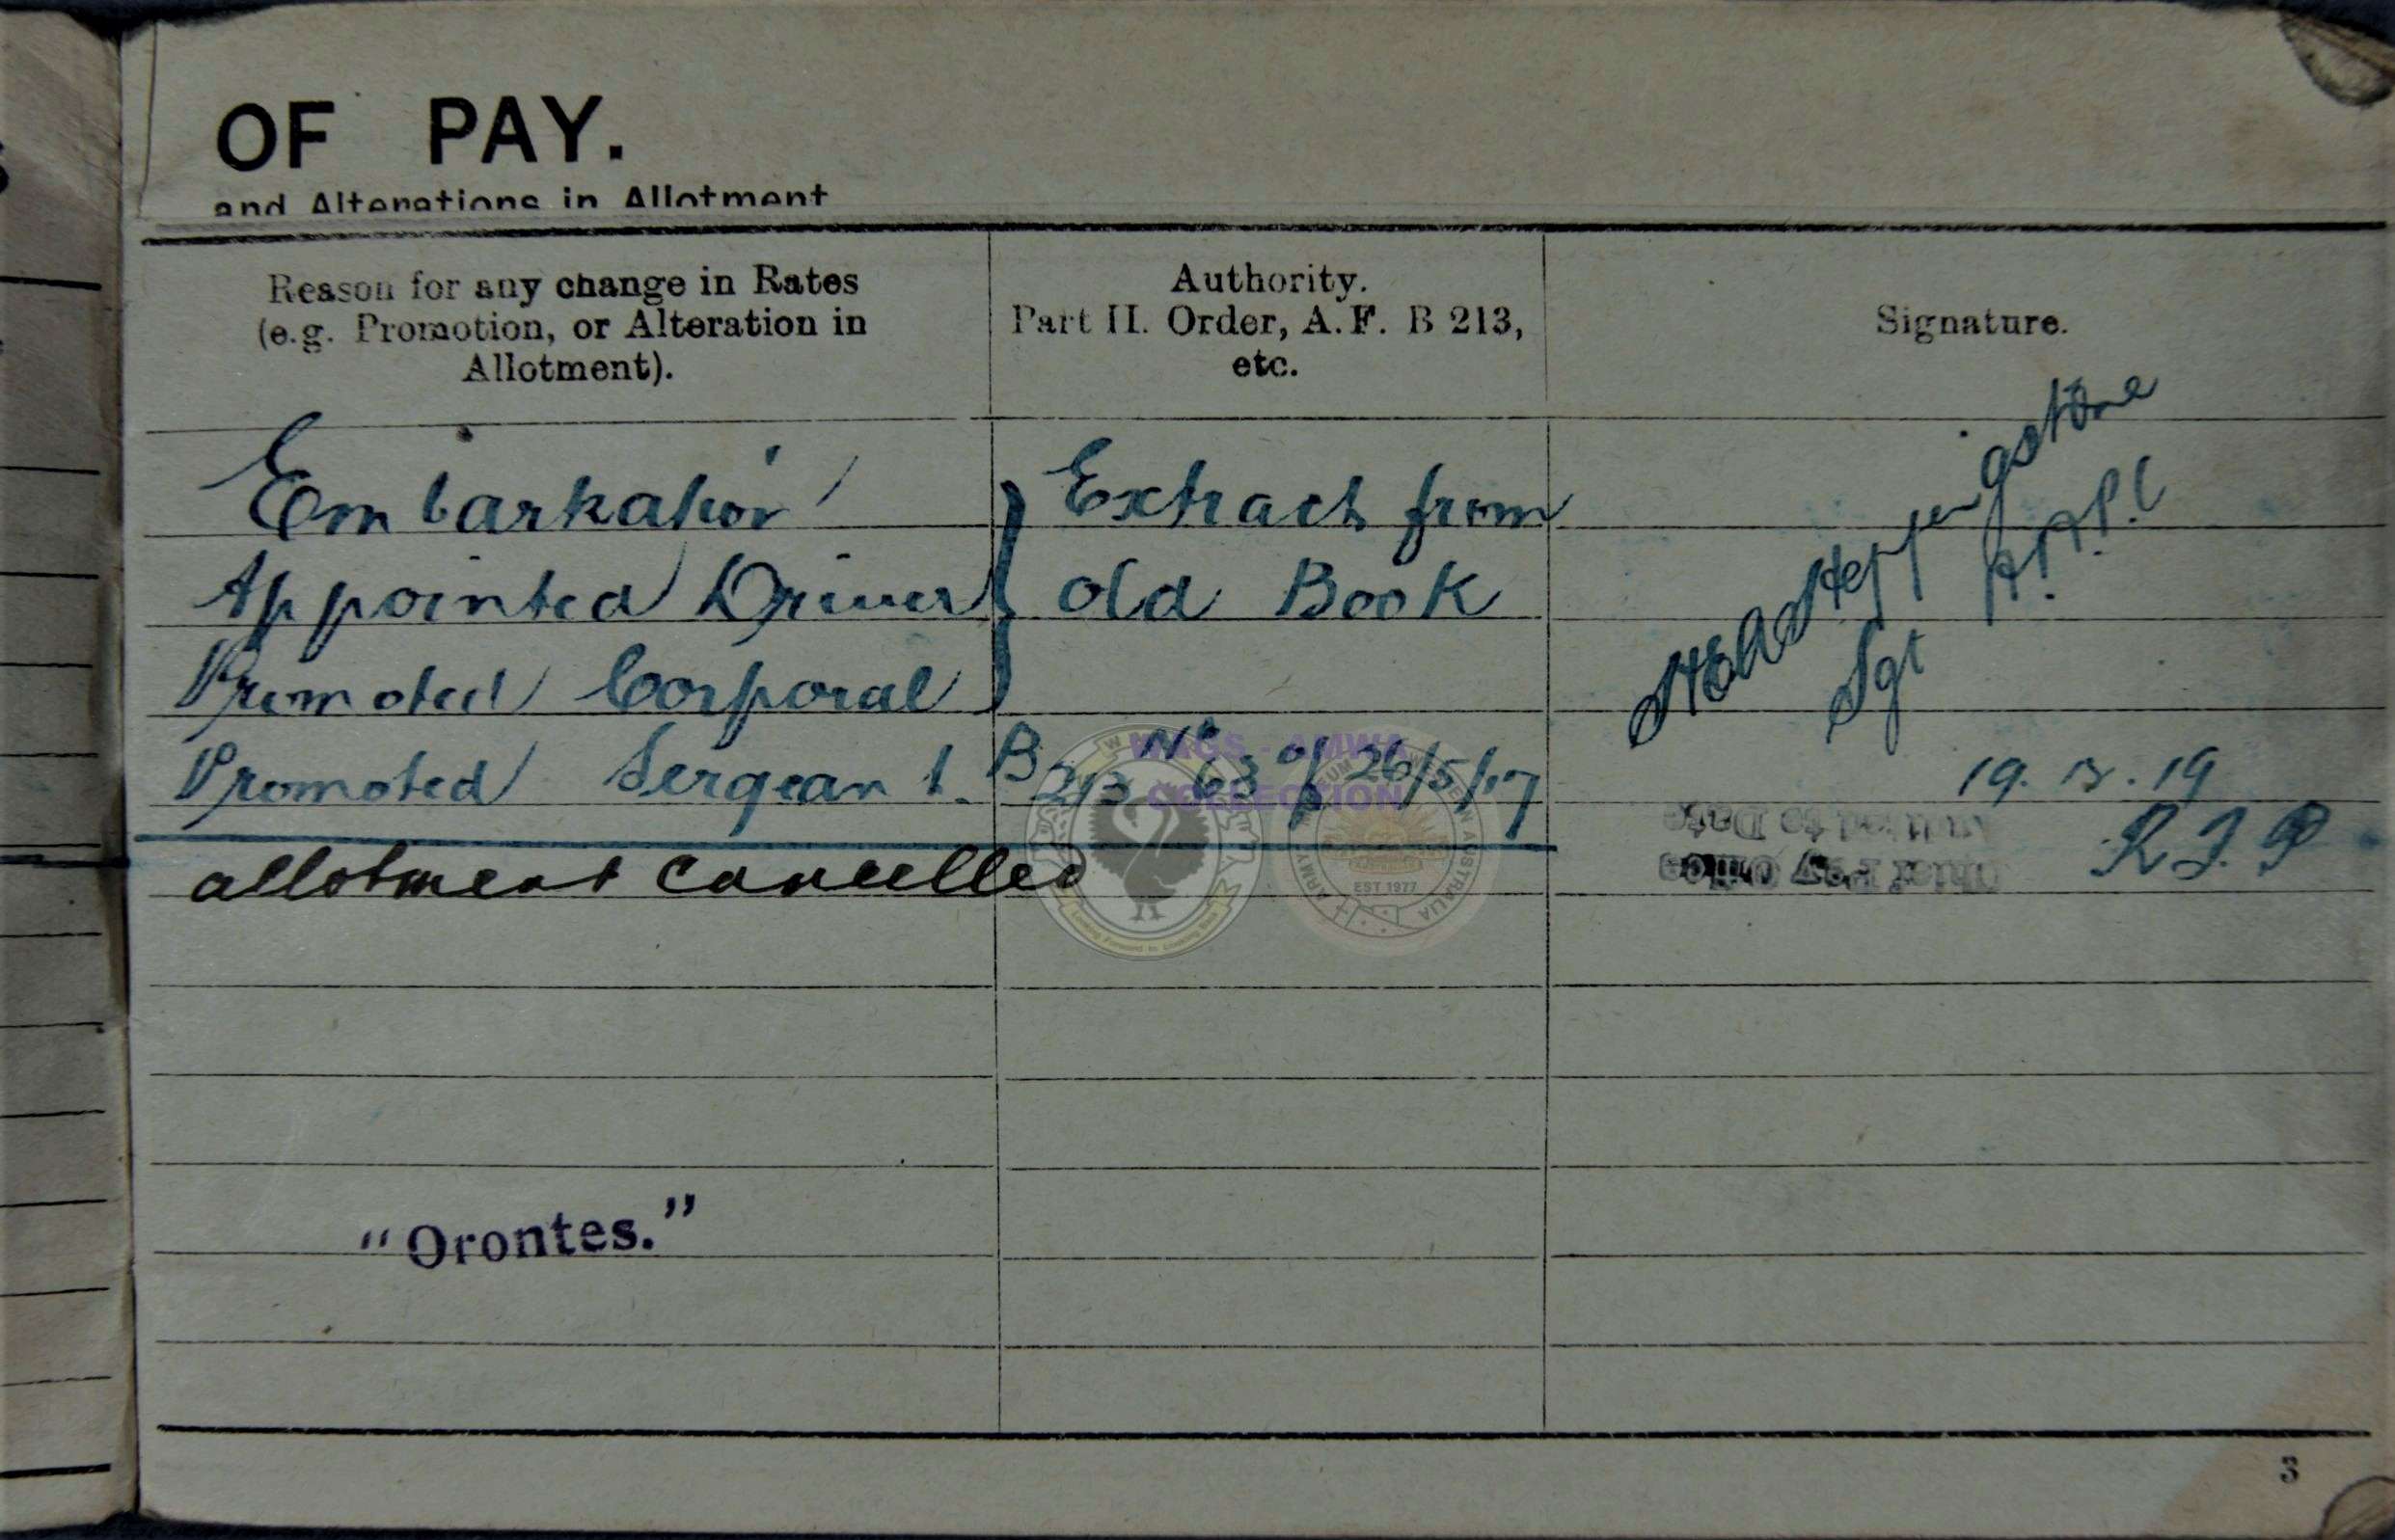 OF PAY.
and Alterations in Allotment
Reason for any change in Rates
(e.g. Promotion, or Alteration in
Allotment).
Authority.
Part II. Order, A. F. B 213,
etc.
Signature.
Embarkation
Appointed Driver
Promoted Corporal
Promoted Sergeant.
allotment cancelled
Extract from
old Book
B 213 No 63 of 26/5/17
Sgt
19. 3. 19
Audited to Date
Chief Pay Office
R.J.P
WAGS - AMWA
COLLECTION
EST 1977
"Orontes."
3